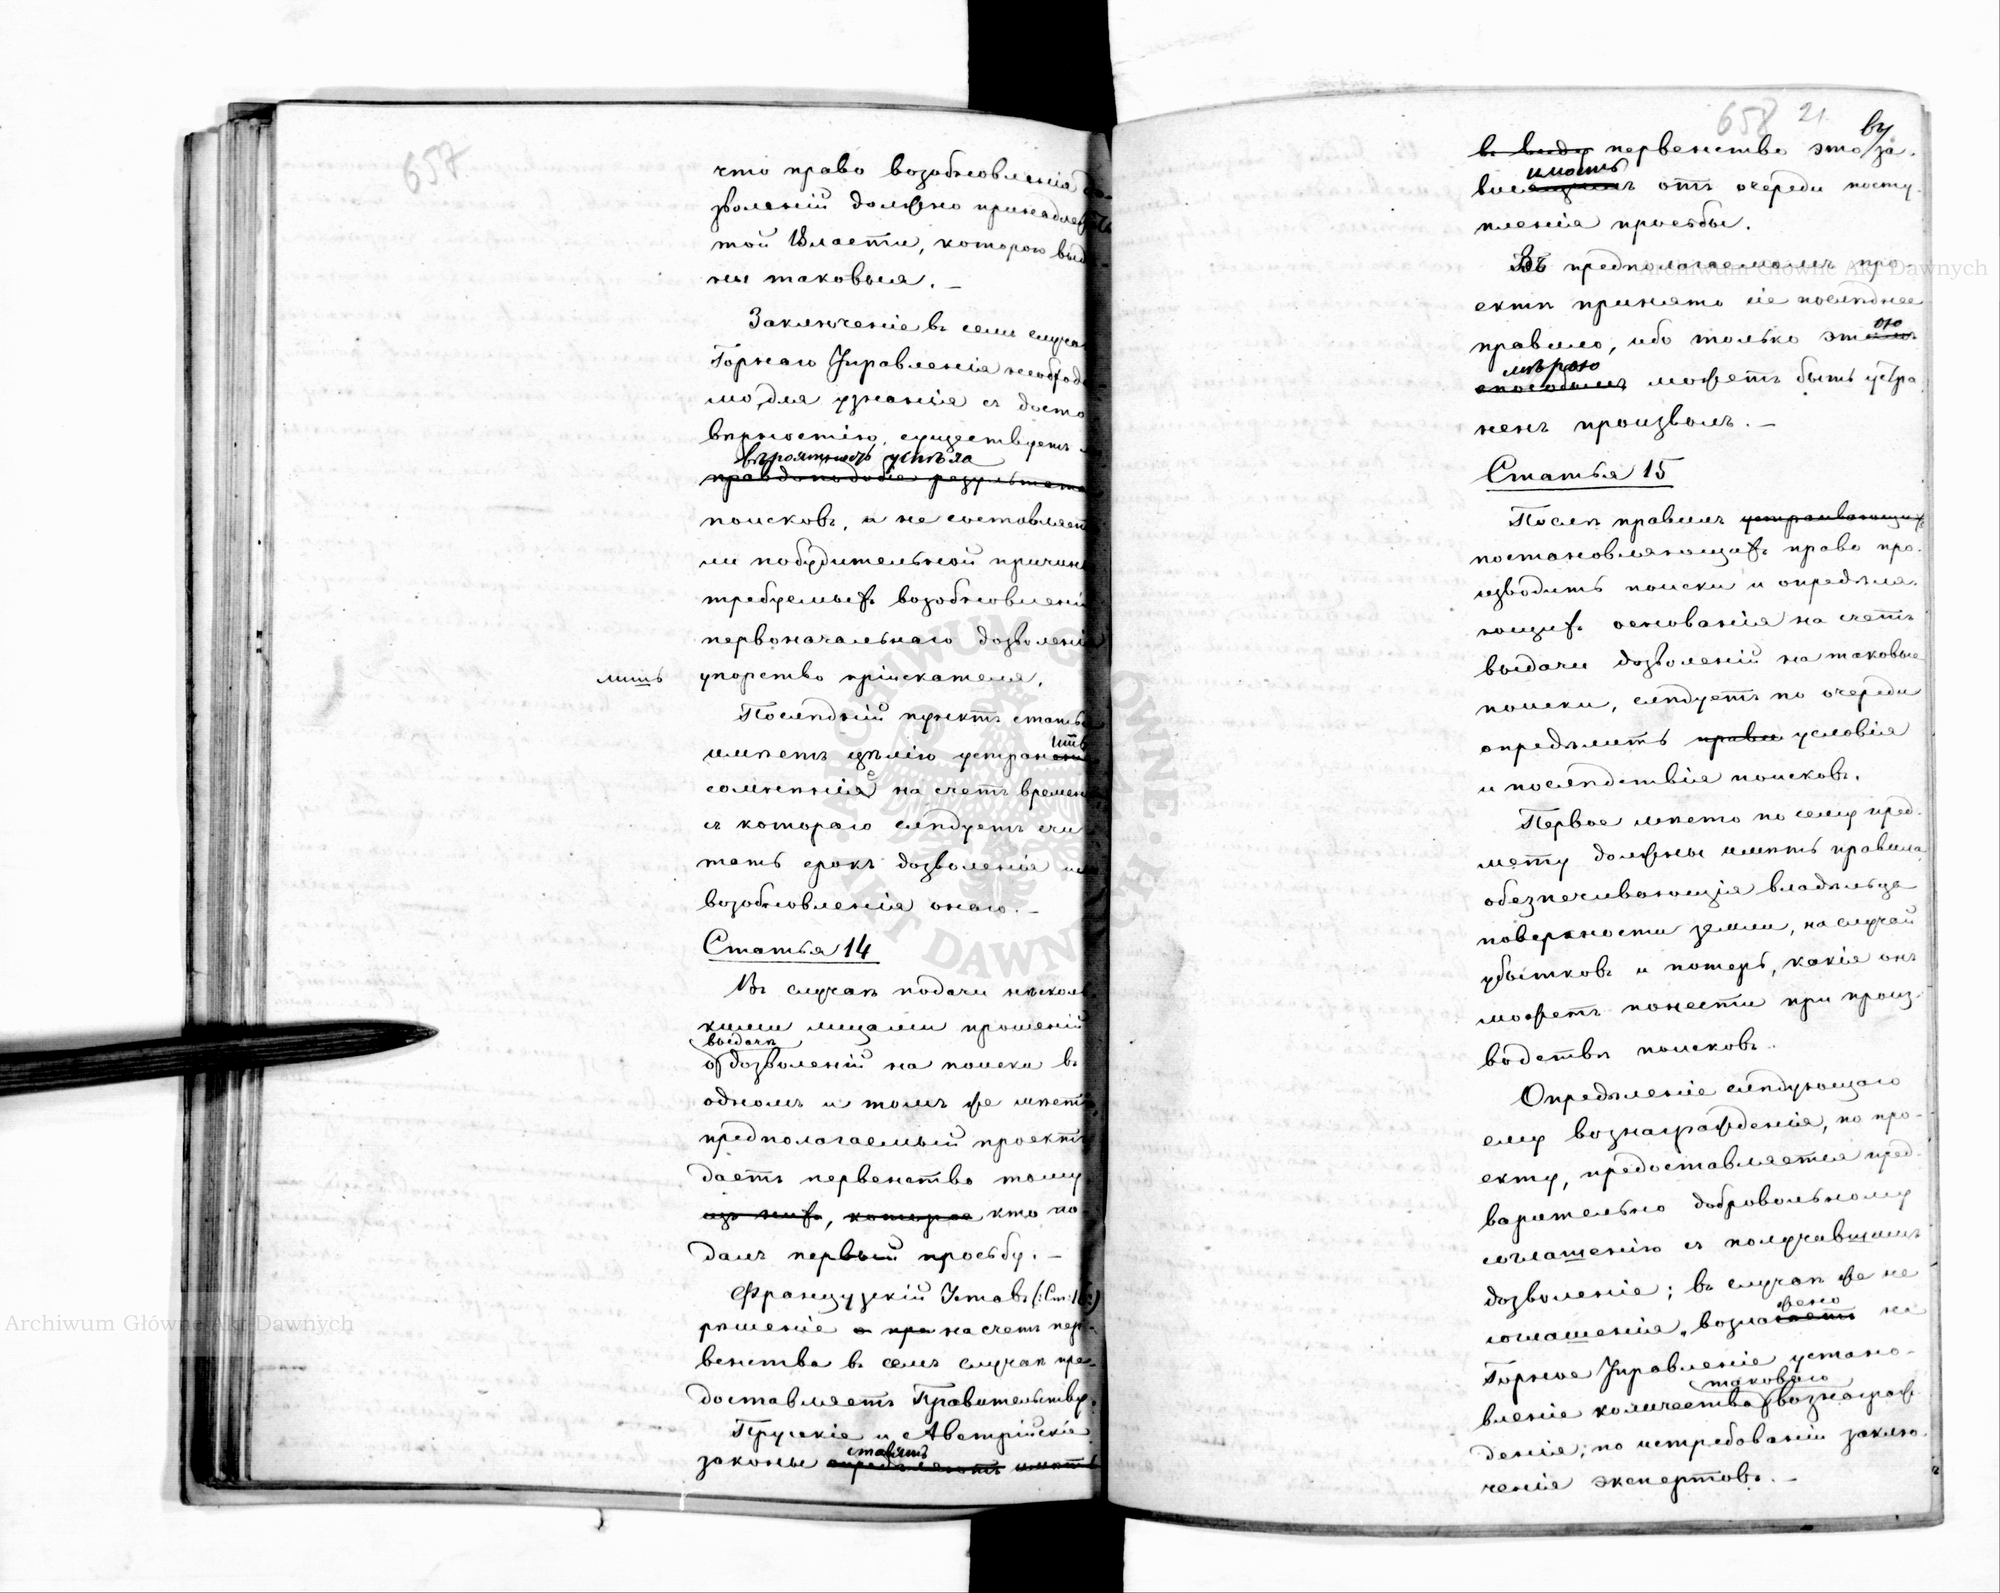 657
что право возобновленія до-
зволеній должно принадлежать
той Власти, которою выда-
ны таковыя. —
Заключеніе въ семъ случаѣ
Горнаго Управленія необходи
мо, для узнанія съ досто
вѣрностію, существуетъ ли
вѣроятность успѣха
правдоподобіе результата
поисковъ, и не составляетъ
ли побудительной причины
требуемыхъ возобновленій
первоначальнаго дозволенія
лишь упорство пріискателя.
Послѣдній пунктъ статьи
имѣетъ цѣлію устранить
сомнѣніе на счетъ времени
съ котораго слѣдуетъ счи
тать срокъ дозволенія или
возобновленія онаго. —
Статья 14
Въ случаѣ подачи нѣсколь
кими лицами прошеній
выдачѣ
о дозволеній на поиски въ
одномъ и томъ же мѣстѣ,
предполагаемый проектъ
даетъ первенство тому
изъ нихъ, которое кто по-
далъ первый просьбу. —
Французскій Уставъ (:Ст: 16:)
рѣшеніе о пра на счетъ пер-
венства въ семъ случаѣ пре-
доставляетъ Правительству.
Прускіе и Австрійскіе
ставятъ
законы опредѣляютъ имѣть
658 21.
въ виду первенство это въ за-
имость
висящемъ отъ очереди посту-
пленія просьбы.
Въ предполагаемомъ про-
ектѣ принято сіе послѣднее
ою
правило, ибо только этимъ
мѣрою
способомъ можетъ быть устра
ненъ произволъ. —
Статья 15
Послѣ правилъ устраивающихъ
постановляющихъ право про-
изводить поиски и опредѣля-
ющихъ основанія на счетъ
выдачи дозволеній на таковые
поиски, слѣдуетъ по очереди
опредѣлить права условія
и послѣдствія поисковъ.
Первое мѣсто по сему пред-
мету должны имѣть правила
обезпечивающія владѣльца
поверхности земли, на случай
убытковъ и потерь, какія онъ
можетъ понести при произ-
водствѣ поисковъ.
Опредѣленіе слѣдующаго
ему вознагражденія, по про-
екту, предоставляется пред-
варительно добровольному
соглашенію съ получившимъ
дозволеніе; въ случаѣ же не
жено
соглашенія, возлагаетъ на
Горное Управленіе устано-
таковаго
вленіе количества вознаграж
денія, по истребованіи заклю-
ченія экспертовъ. —
Archiwum Główne Akt Dawnych
Archiwum Główne Akt Dawnych
ARCHIWUM GŁÓWNE AKT DAWNYCH